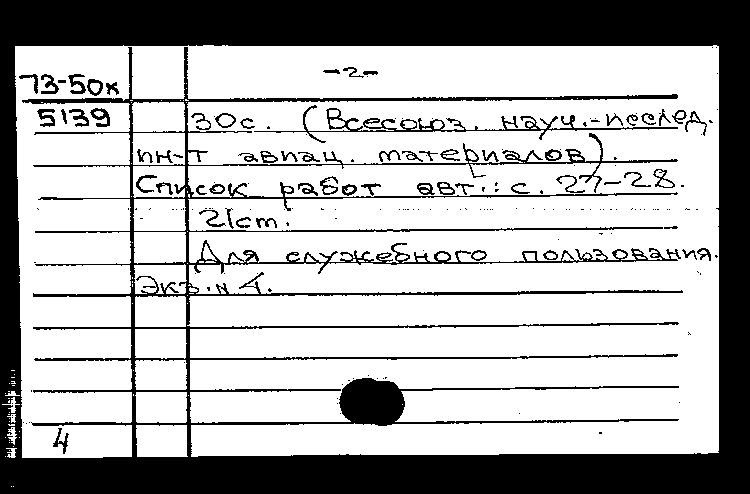 -2-
73-50к
5139
30с. (Всесоюз. науч.-исслед.
ин-т авиац. материалов).
Список работ авт.: с. 27-28.
21см.
Для служебного пользования.
Экз.№ 4.
4